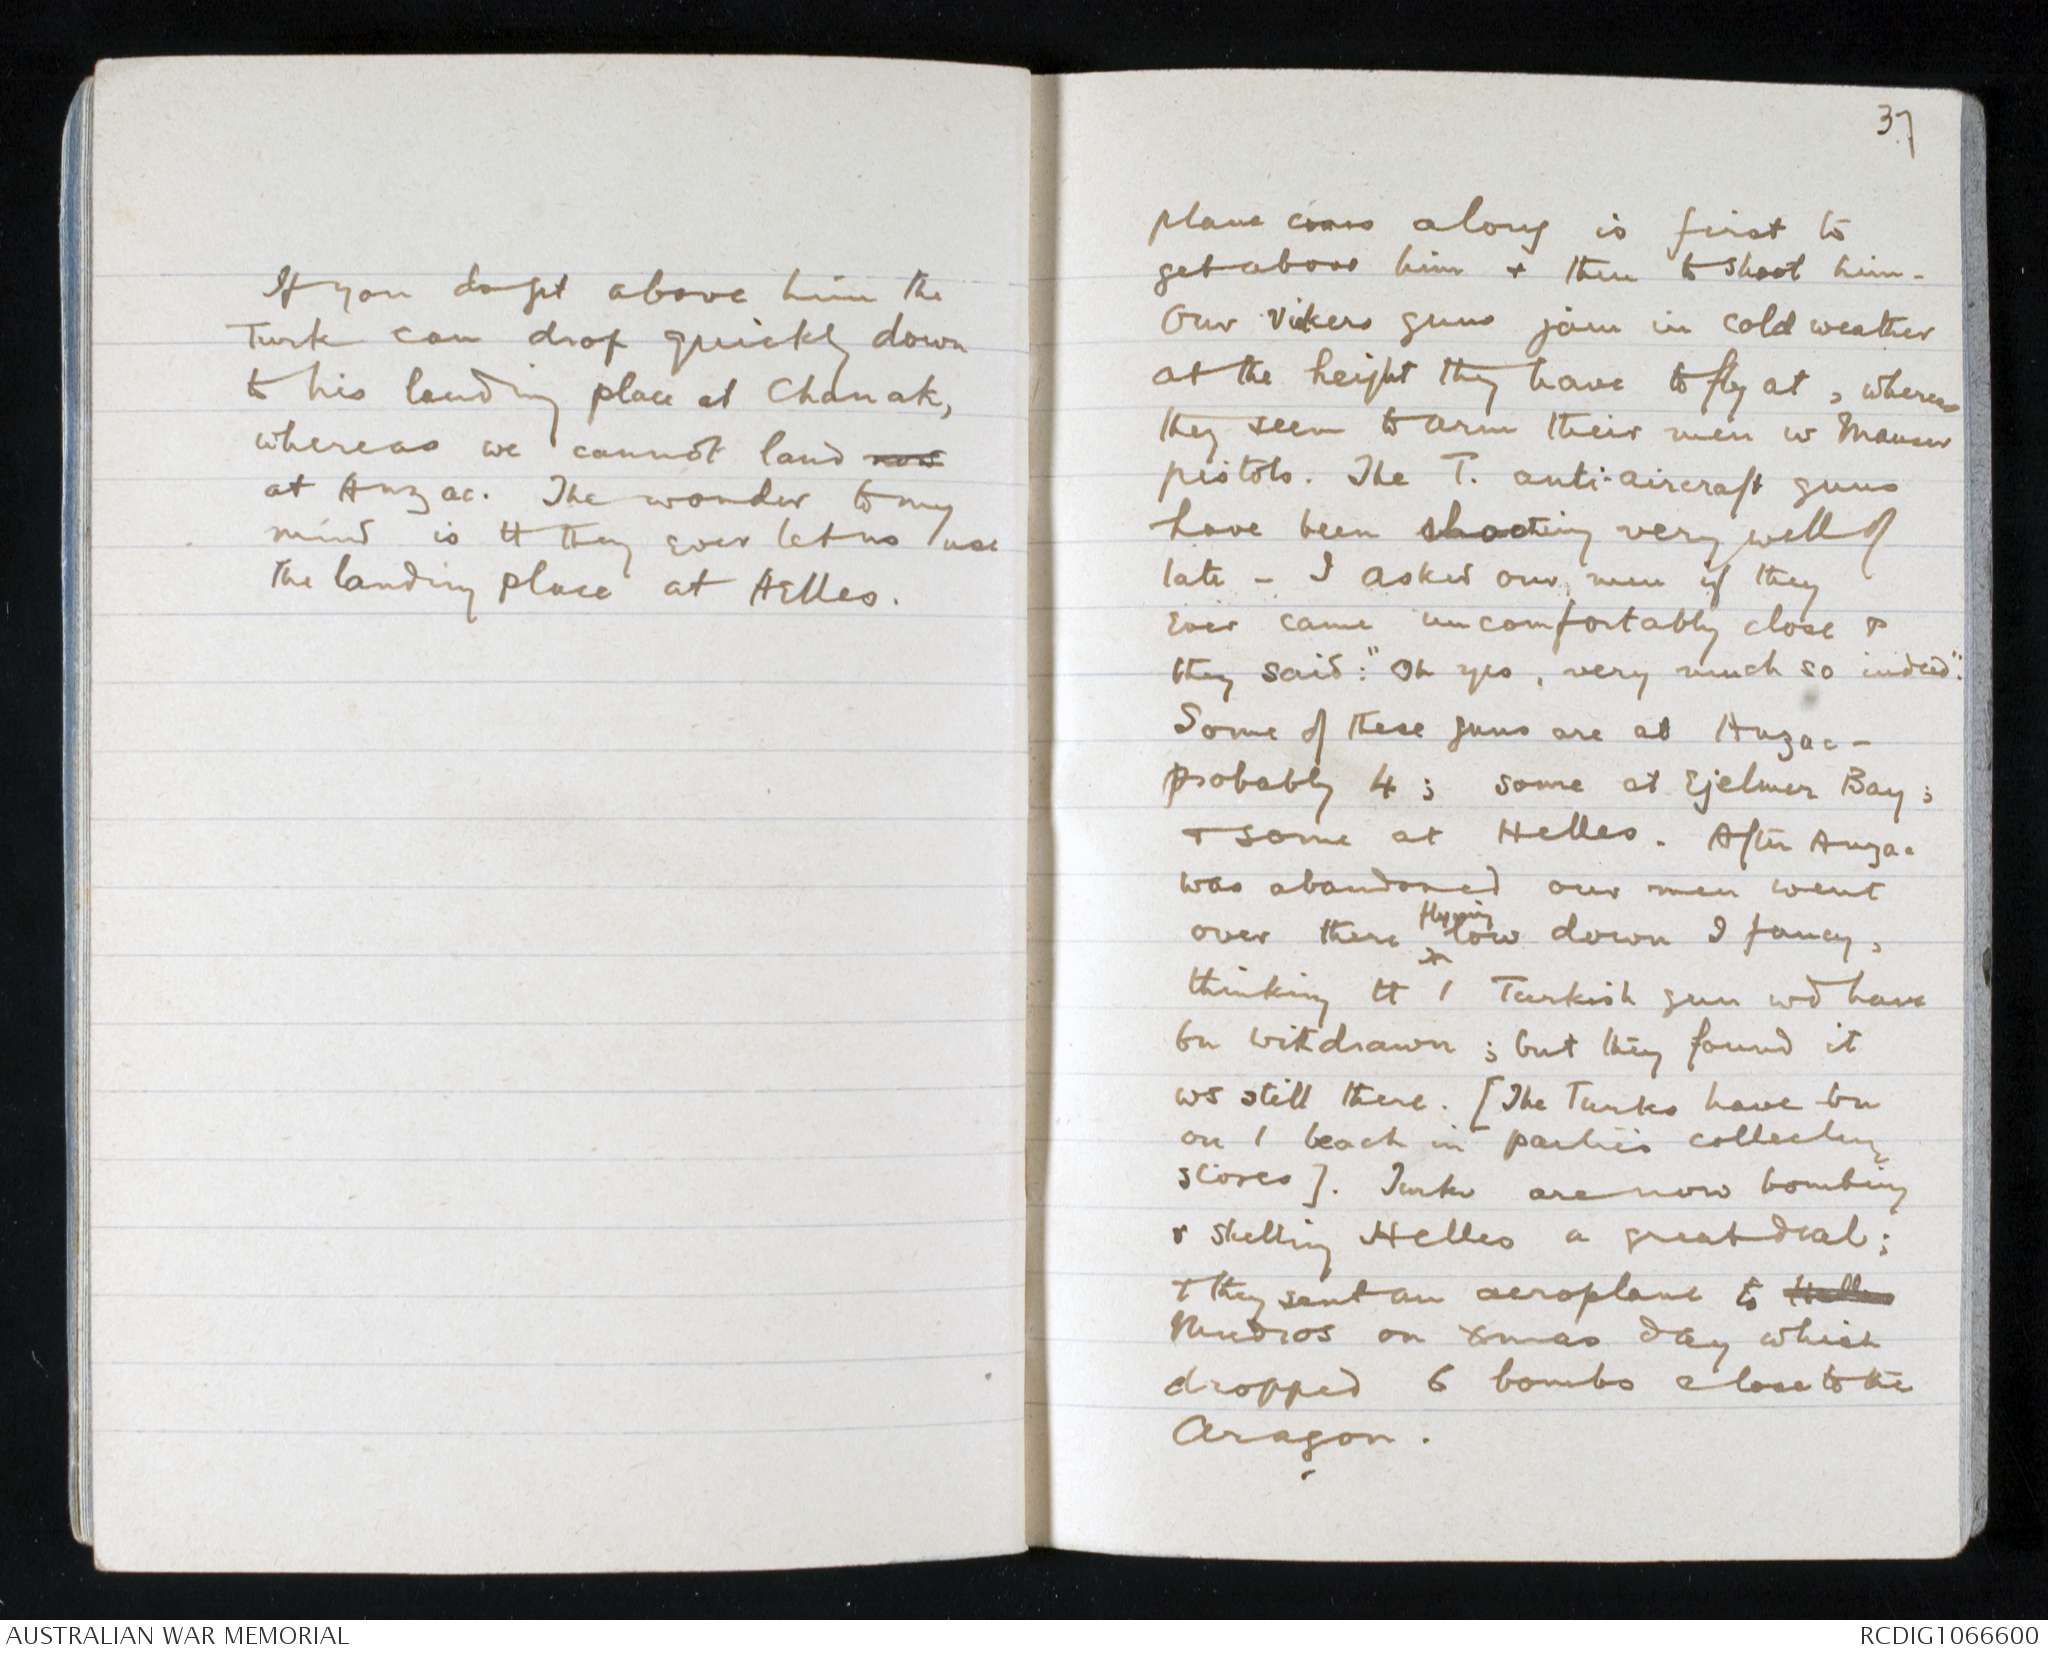 If you do get above him the
Turk can drop quickly down
to his landing place at Chanak,
whereas we cannot land now
at Anzac. The wonder to my
mind is tt they ever let us use
the landing place at Helles.
37
plane comes along is first to
get above him & then to shoot him -
Our Vickers guns jam in cold weather
at the height they have to fly at, whereas
they seem to arm their men w Mauser
pistols. The T. anti-aircraft guns
have been shooting very well of
late - I asked our men if they
ever came uncomfortably close &
they said: "Oh yes, very much so indeed".
Some of these guns are at Anzac -
probably 4; some at Ejelmer Bay;
& some at Helles. After Anzac
was abandoned our men went
over there flying low down I fancy,
thinking tt / Turkish gun wd have
bn withdrawn; but they found it
ws still there. [The Turks have bn
on / beach in parties collecting
stores]. Turks are now bombing
& shelling Helles a great deal;
& they sent an aeroplane to Helles
Mudros on Xmas day which
dropped 6 bombs close to the
Aragon.
AUSTRALIAN WAR MEMORIAL
RCDIG1066600